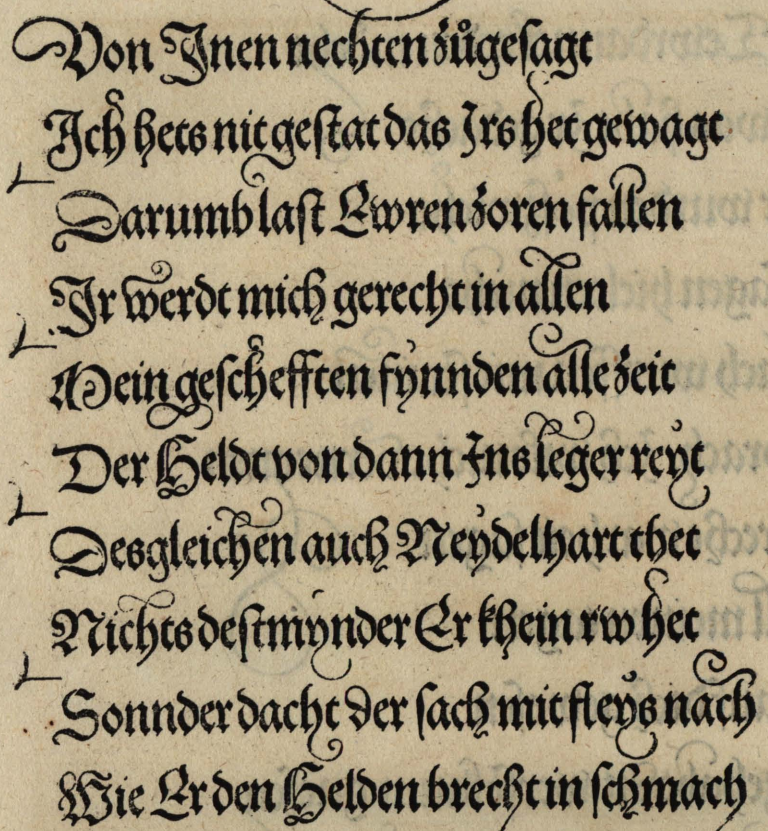 Von Inen nechten zůgesagt
Ich hets nit gestat das Irs het gewagt
Darumb last Ewren zoren fallen
Ir werdt mich gerecht in allen
Mein geschefften fynnden alle zeit
Der Heldt von dann Ins leger reyt
Desgleichen auch Neydelhart thet
Nichts destmynder Er khein rw het
Sonnder dacht der sach mit fleys nach
Wie Er den Helden brecht in schmach